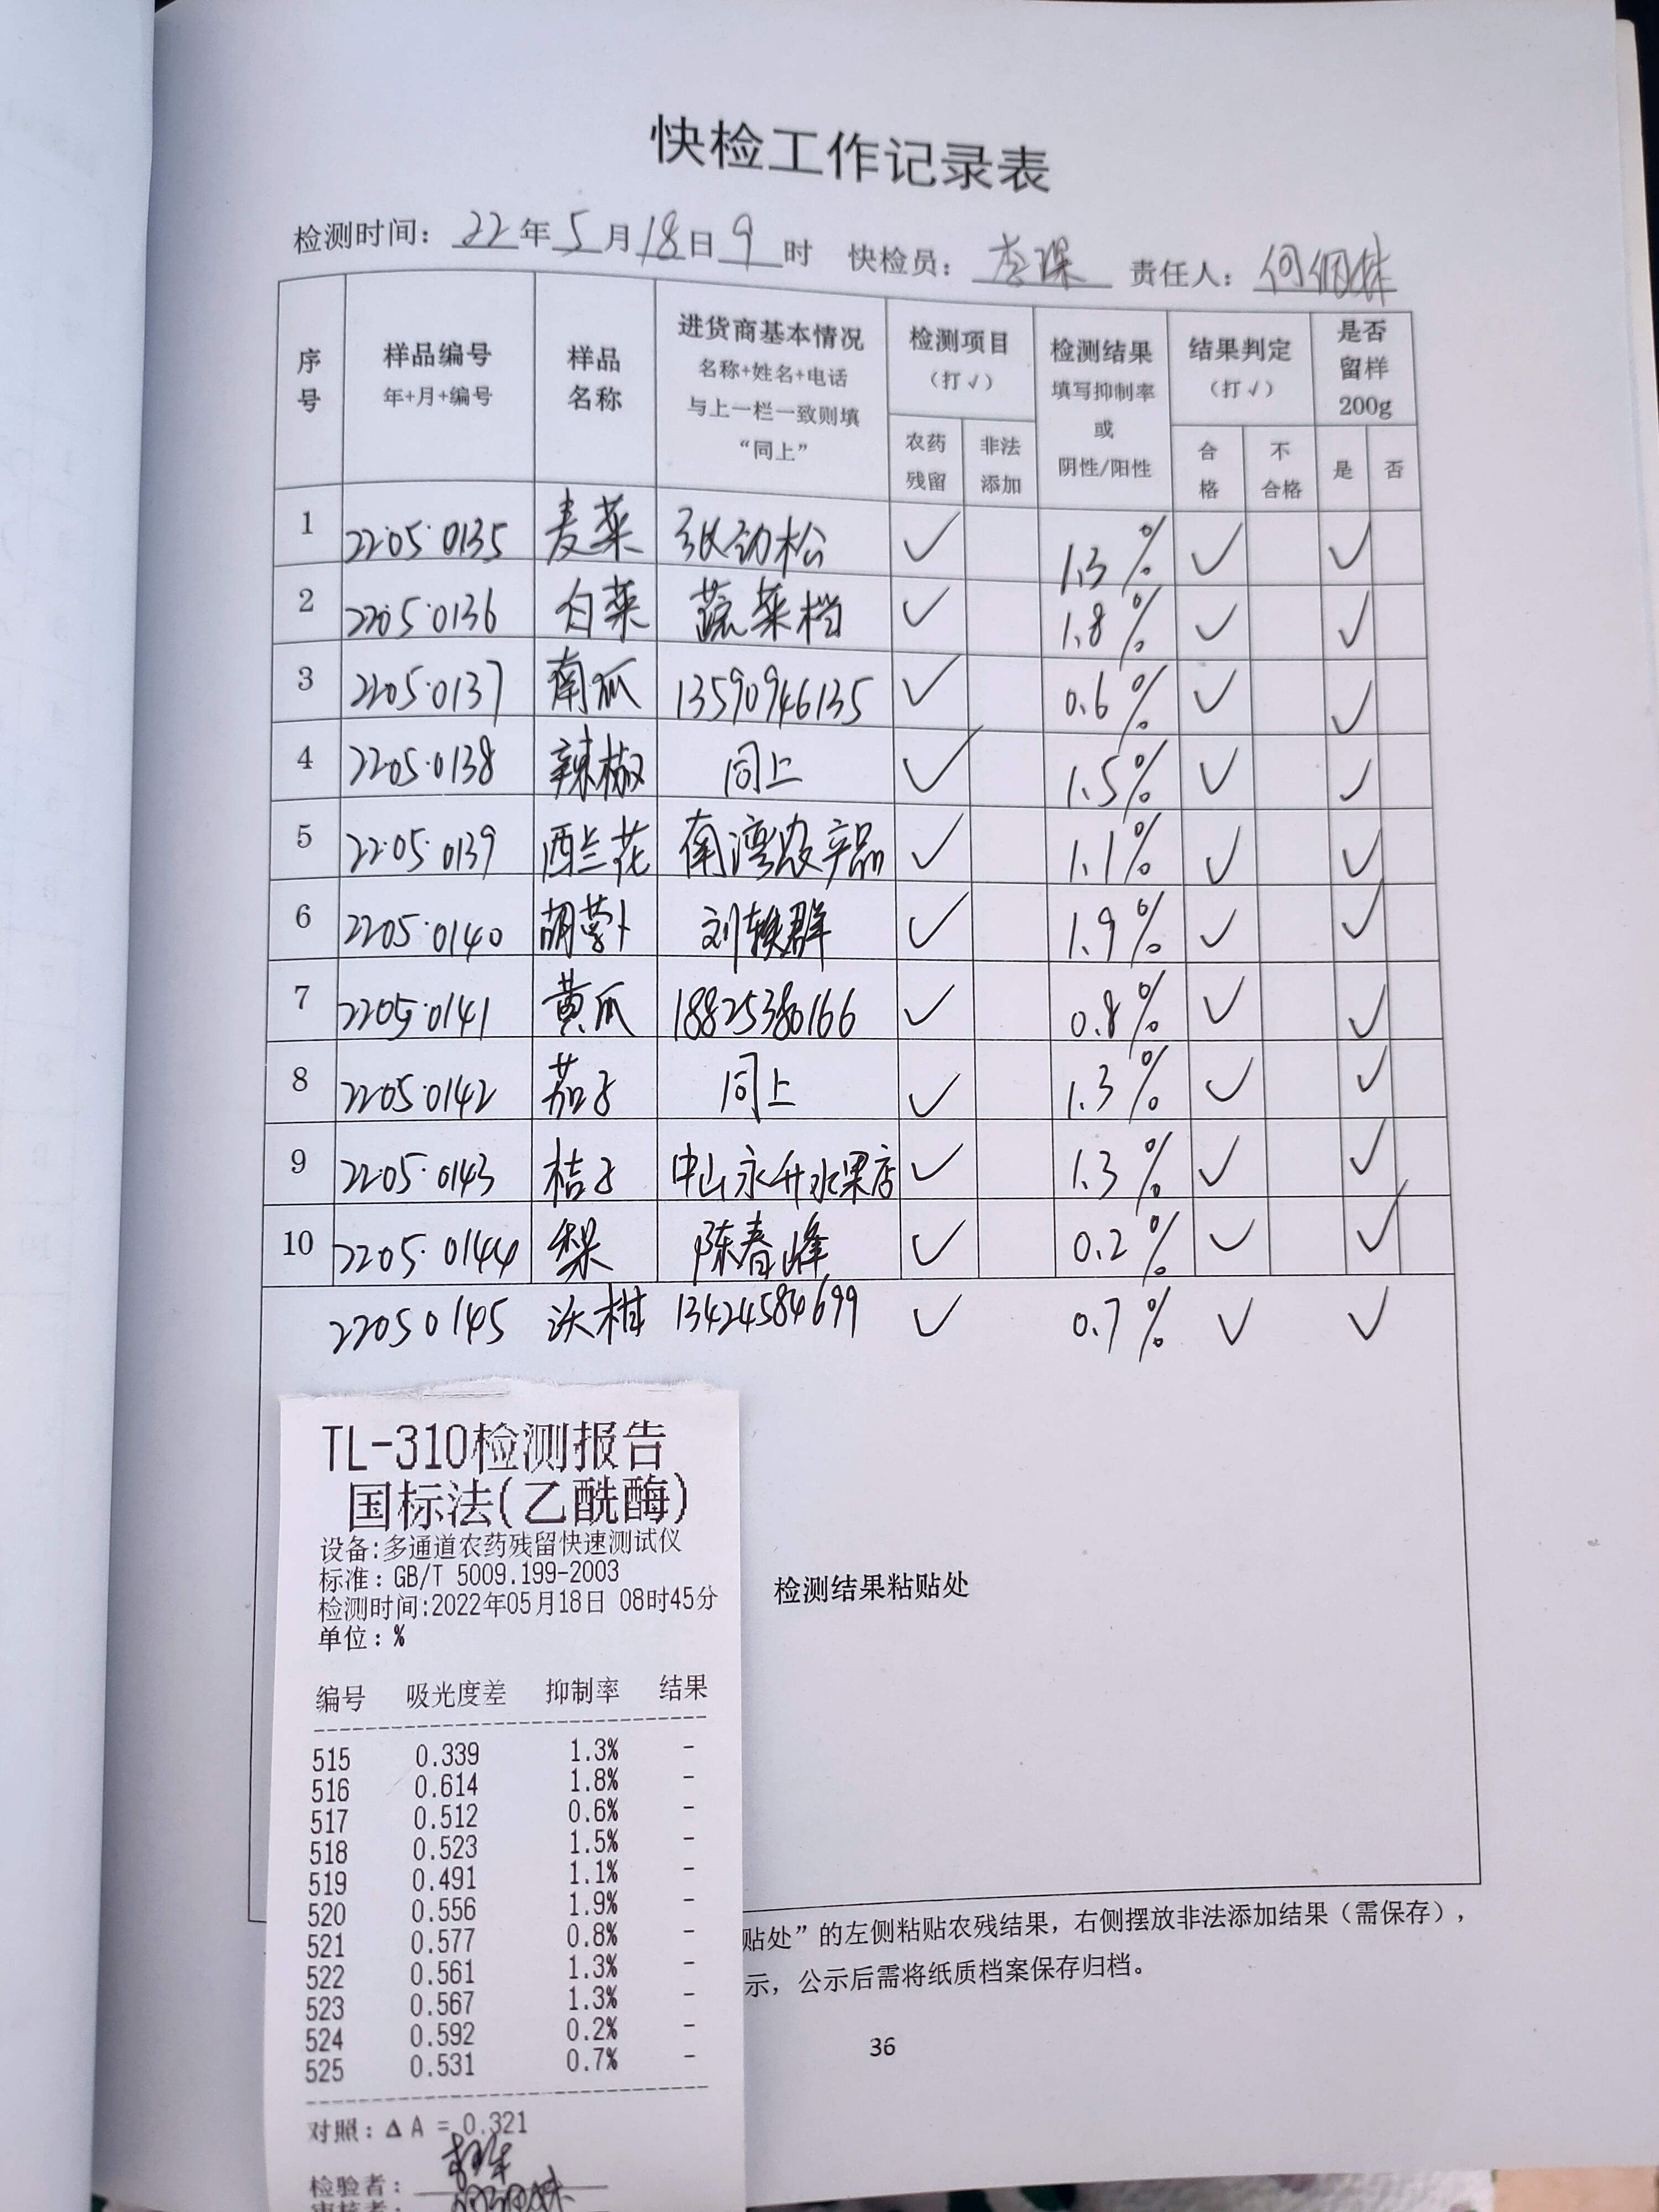 快检工作记录表
检测时间：22年5月18日9时 快检员：李深 责任人：
序号 样品编号 年+月+编号 样品名称 进货商基本情况 名称+姓名+电话 与上一栏一致则填“同上” 检测项目（打√） 农药残留 非法添加 检测结果 填写抑制率或阴性/阳性 结果判定（打√） 合格 不合格 是否留样200g 是 否
1 2205·0135 麦菜 张劲松 ✓ 1.3% ✓ ✓
2 2205·0136 白菜 蔬菜档 ✓ 1.8% ✓ ✓
3 2205·0137 南瓜 13590946135 ✓ 0.6% ✓ ✓
4 2205·0138 辣椒 同上 ✓ 1.5% ✓ ✓
5 2205·0139 西兰花 南湾农产品 ✓ 1.1% ✓ ✓
6 2205·0140 胡萝卜 刘轶群 ✓ 1.9% ✓ ✓
7 2205·0141 黄瓜 18825386166 ✓ 0.8% ✓ ✓
8 2205·0142 茄子 同上 ✓ 1.3% ✓ ✓
9 2205·0143 桔子 中山永升水果店 ✓ 1.3% ✓ ✓
10 2205·0144 梨 陈春峰 ✓ 0.2% ✓ ✓
22050145 沃柑 13424584699 ✓ 0.7% ✓ ✓
TL-310检测报告
国标法(乙酰酶)
设备:多通道农药残留快速测试仪
标准：GB/T 5009.199-2003
检测时间:2022年05月18日 08时45分
单位：%
检测结果粘贴处
编号 吸光度差 抑制率 结果
515 0.339 1.3% -
516 0.614 1.8% -
517 0.512 0.6% -
518 0.523 1.5% -
519 0.491 1.1% -
520 0.556 1.9% -
521 0.577 0.8% -
522 0.561 1.3% -
523 0.567 1.3% -
524 0.592 0.2% -
525 0.531 0.7% -
对照：Δ A = 0.321
检验者：
审核者：
贴处”的左侧粘贴农残结果，右侧摆放非法添加结果（需保存），
示，公示后需将纸质档案保存归档。
36